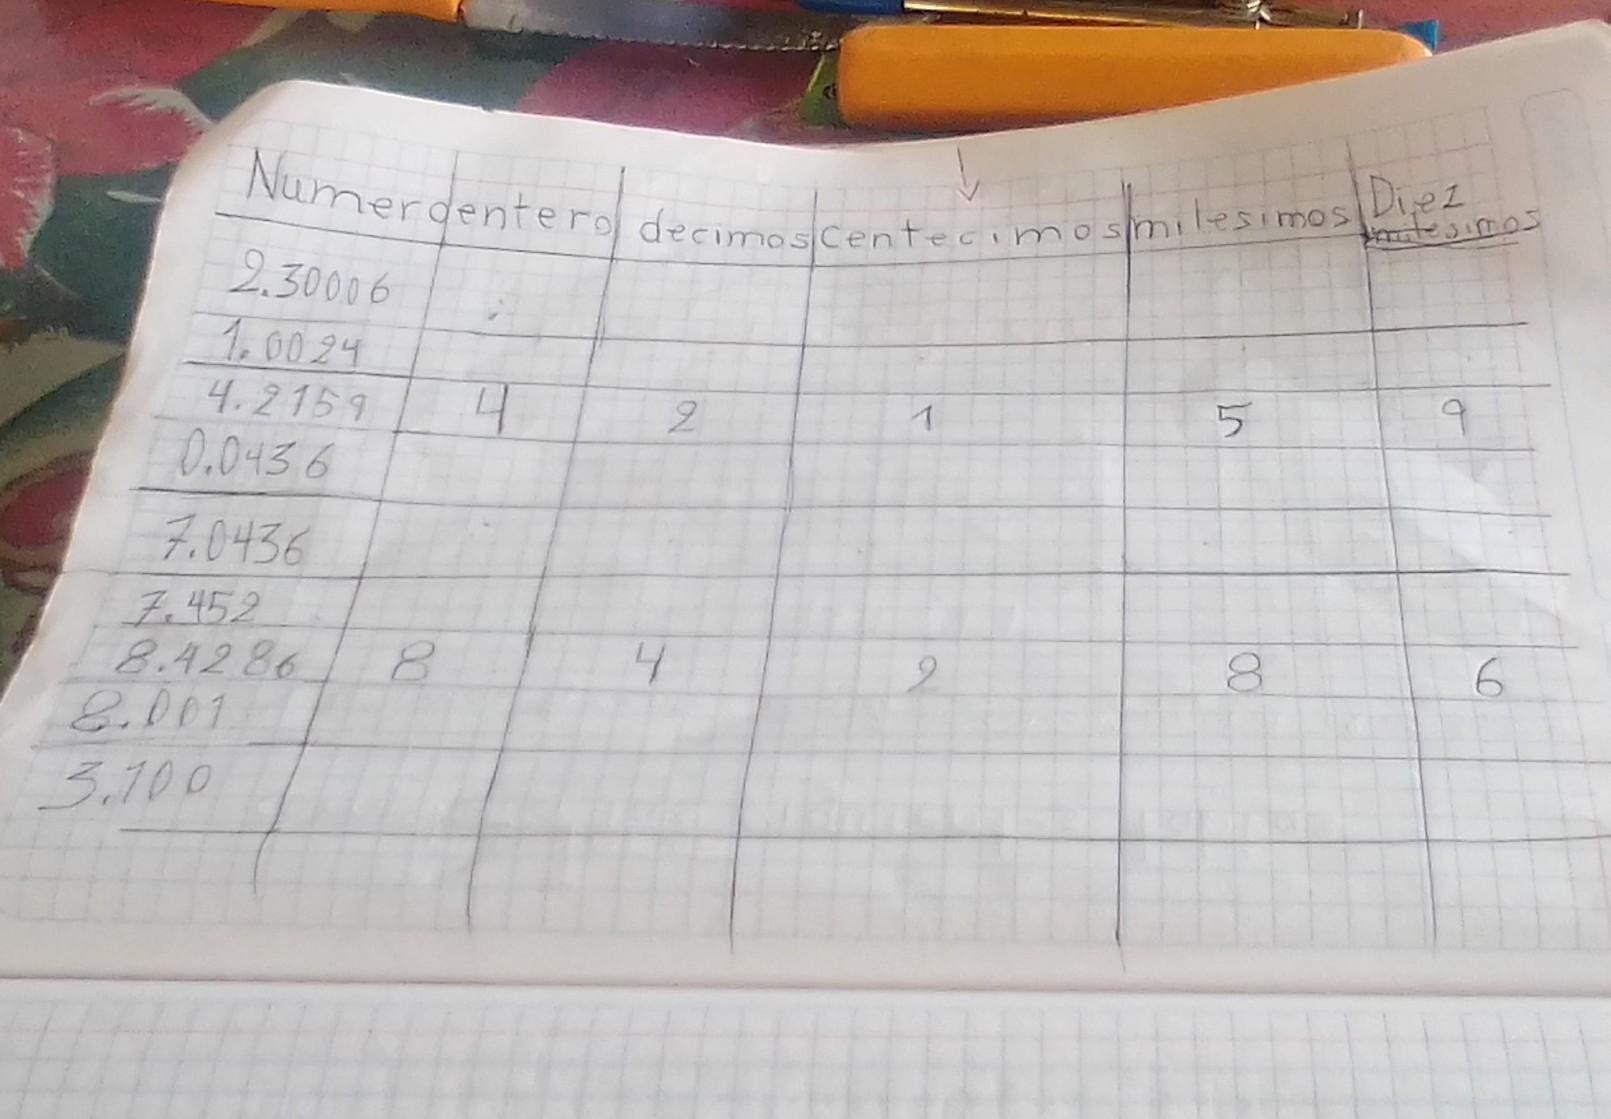 Numero entero decimos centecimos milesimos Diez milesimos
2.30006
1.0024
4.2159 4 2 1 5 9
0.0436
7.0436
7.452
8.4286 8 4 2 8 6
8.001
3.100